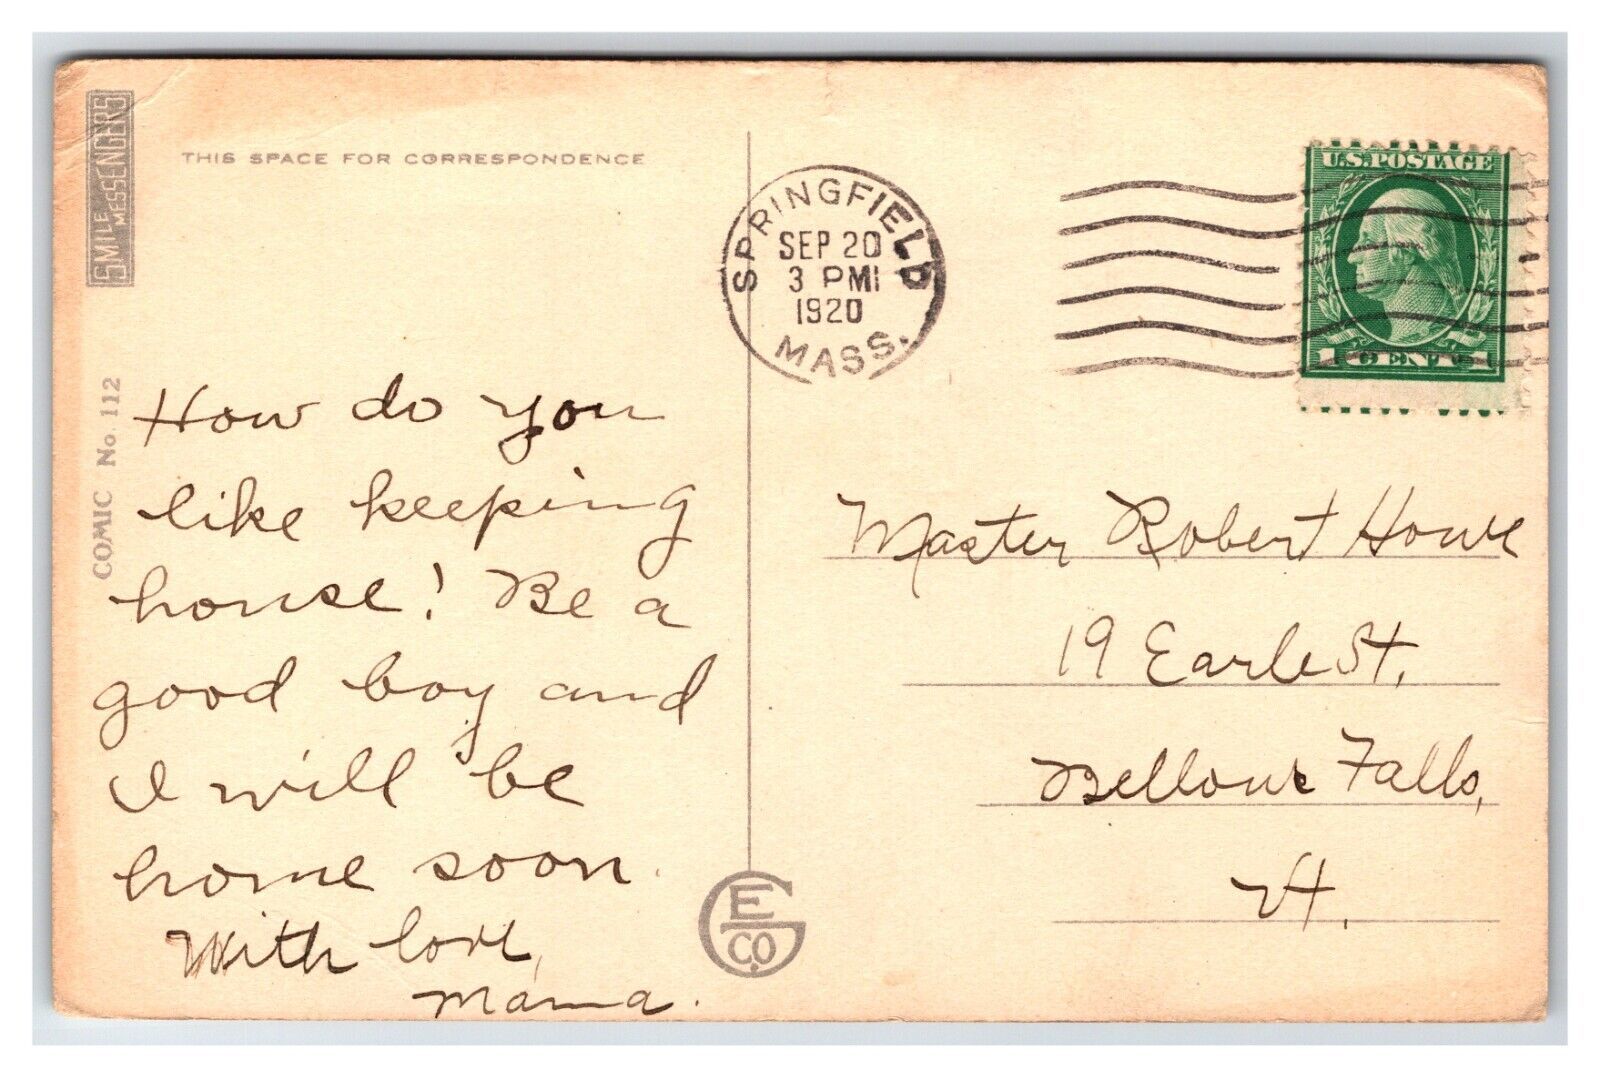 SMILE MESSENGERS
COMIC No. 112
THIS SPACE FOR CORRESPONDENCE
How do you
like keeping
house! Be a
good boy and
I will be
home soon.
With love,
Mama.
E G CO.
SPRINGFIELD
SEP 20
3 PM
1920
MASS.
U.S. POSTAGE
1 CENT 1
Master Robert Howe
19 Earle St,
Bellows Falls,
Vt.